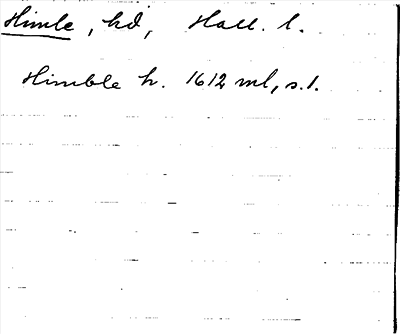 Himle, hd, Hall. l.
Himble h. 1612 ml, s. 1.